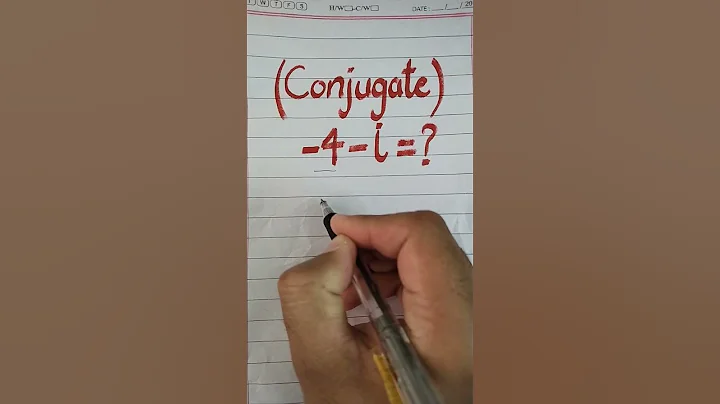 W T F S H/W C/W DATE: __/__/20
(Conjugate)
-4-i=?